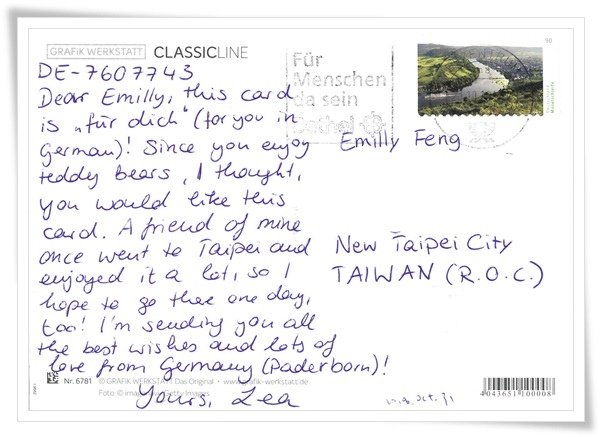 GRAFIK WERKSTATT CLASSICLINE
DE-7607743
Dear Emilly, this card
is „für dich“ (for you in
German)! Since you enjoy
teddy bears, I thought,
you would like this
card. A friend of mine
once went to Taipei and
enjoyed it a lot, so I
hope to go there one day,
too! I'm sending you all
the best wishes and lots of
love from Germany (Paderborn)!
Yours, Lea
Für
Menschen
da sein
Bethel
90
Emilly Feng
New Taipei City
TAIWAN (R.O.C.)
Nr. 6781 © GRAFIK WERKSTATT Das Original • www.grafik-werkstatt.de
Foto: © Getty Images
4043651100008